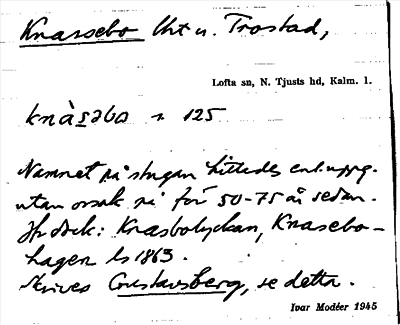 Knassebo lht u. Trostad,
Lofta sn, N. Tjusts hd, Kalm. l.
knàs̲əbo 125
Namnet på stugan hittades enl. uppg.
utan orsak på för 50-75 år sedan.
Jfr dock: Knasbolyckan, Knasebo-
hagen ls 1863.
Skrives Gustavsberg, se detta.
Ivar Modéer 1945